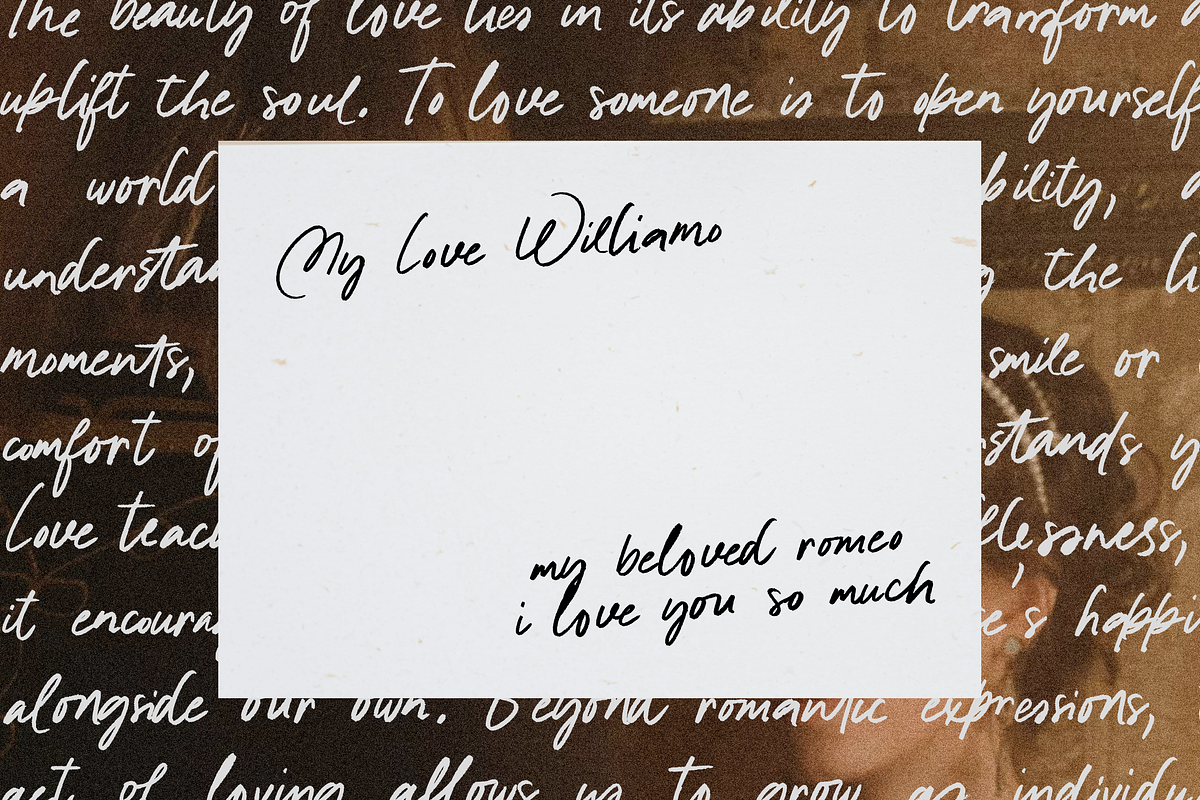 The beauty of love lies in its ability to transform a
uplift the soul. To love someone is to open yourself
a world bility,
understan g the li
moments, smile or
comfort of stands y
Love teac lessness,
it encoura e's happi
alongside our own. Beyond romantic expressions,
act of loving allows us to grow as individu
My Love Williams
my beloved romeo
i love you so much